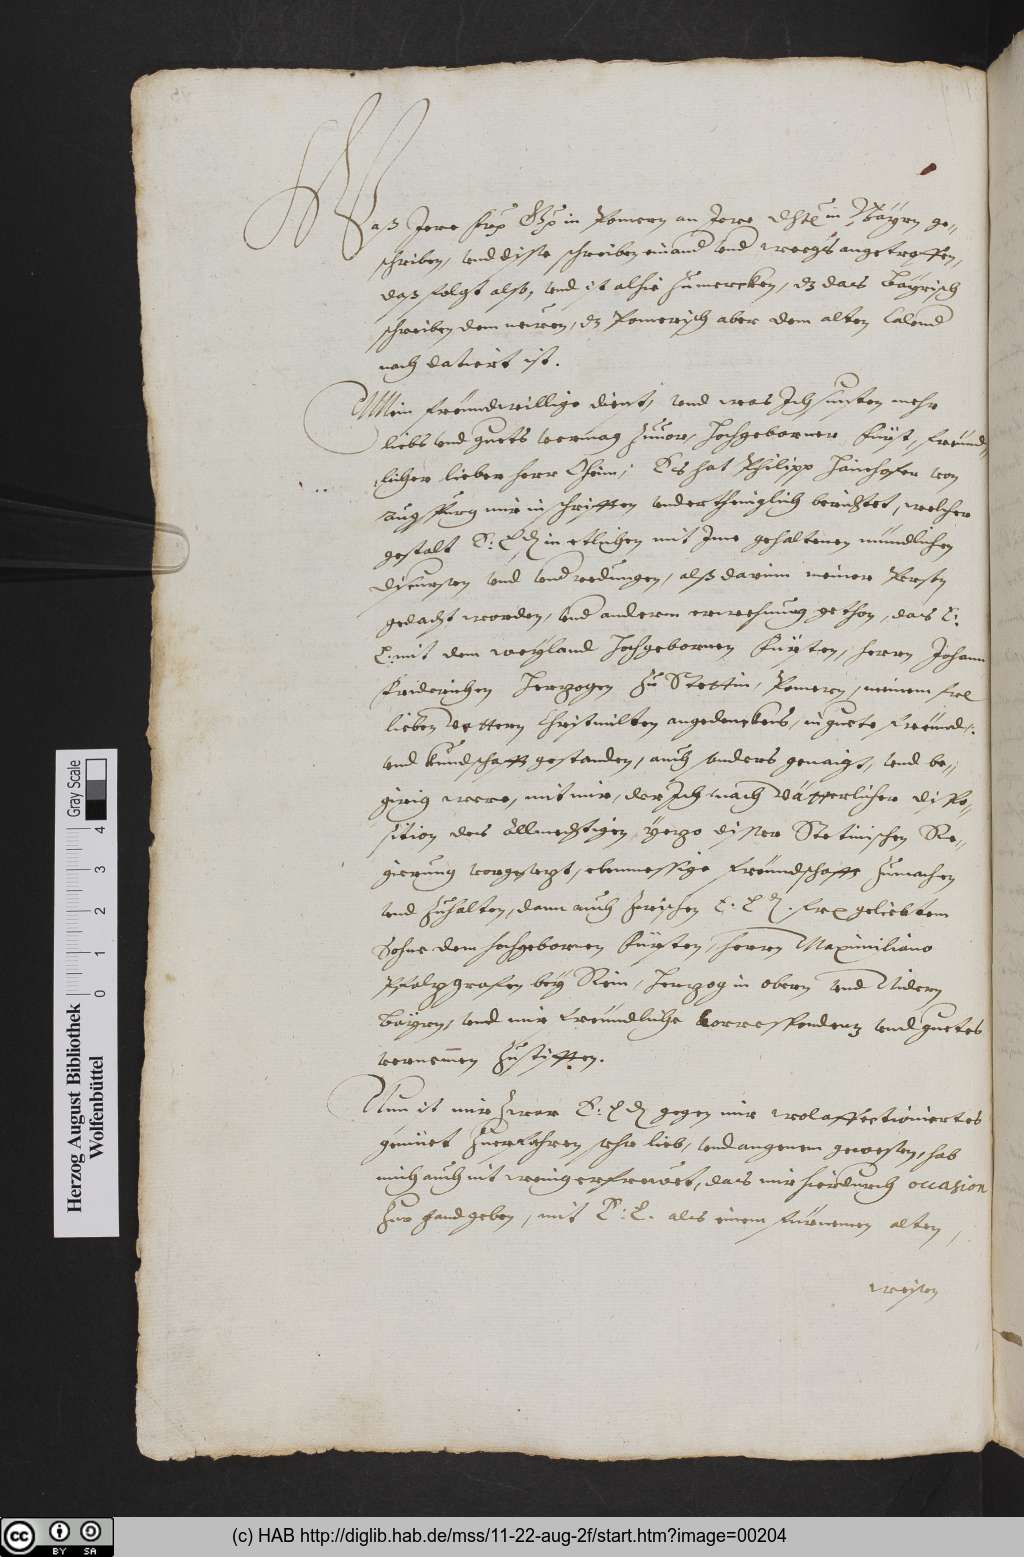 Waß Jere frp. Gn. in Pomern an Jere dhtl. in Bäyrn ge-
schriben, vnd dise schreiben einand vnd weegs angetroffen,
daß folgt alß, vnd ist alhie zumercken, dz das Bayrisch
schreiben dem newen, dz Pomerisch aber dem alten Calend
nach datiert ist.
Mein freündwillige dienst, vnd was Ich sunsten mehr
liebs vnd guets vermag zuuor, Hochgeborner Fürst, freünd-
licher lieber herr Ohem, Es hat Philipp Hainhofer von
Augspurg mir in schrifften vnderthenigklich berichtet, welcher
gestalt E: L: in etlichen mit Ime gehaltenen mundlichen
discursen vnd vndredungen, alß darinn meiner Person
gedacht worden, vnd anderm erwehnung gethon, das E:
L: mit dem weyland Hochgebornen Fürsten, herrn Johann
Friderichen Herzogen zu Stettin, Pomern, meinem frl
lieben Vettern Christmilten angedenckens, in guete freünd-
vnd kundschafft gestanden, auch sonders genaigt, vnd be-
girig were, mit mir, der Ich nach Vätterlicher dispo-
sition des Allmechtigen yezo diser Stetinischen Re-
gierung vorgesezt, ebenmessige freündschafft zumachen
vnd zuhalten, dann auch zwischen E: L: frp geliebtem
Sohne dem hochgebornen Fürsten, herrn Maximiliano
Pfalzgrafen bey Rein, Herzog in obern vnd Nidern
Bayrn, vnd mir freündliche Correspondenz vnd guetes
vernemen zustifften.
Nun ist mir zwar E: L: gegen mir wolaffectioniertes
gemüet zuerfahren sehr lieb, vnd angenem gewesen, hab
mich auch nit wenig erfrewet, das mir hierdurch occasion
zur hand geben, mit E: L: als einem fürnemen alten,
weysen
Herzog August Bibliothek
Wolfenbüttel
0 1 2 3 4
Gray Scale
cc BY SA
(c) HAB http://diglib.hab.de/mss/11-22-aug-2f/start.htm?image=00204